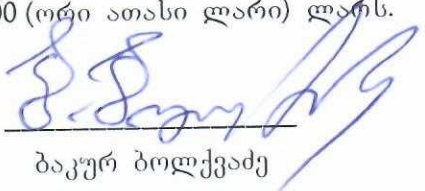 0 (ორი ათასი ლარი) ლარს.
ბაკურ ბოლქვაძე